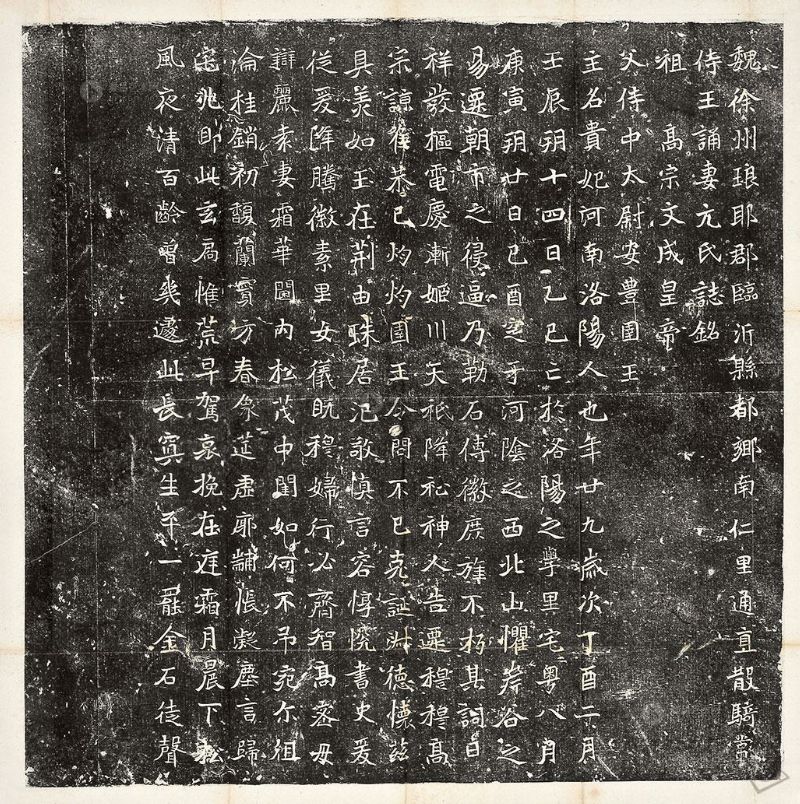 魏徐州琅耶郡臨沂縣都鄉南仁里通直散騎常
侍王誦妻元氏誌銘
祖高宗文成皇帝
父侍中太尉安豐圉王
主名貴妃河南洛陽人也年廿九歲次丁酉二月
壬辰朔十四日乙巳亡於洛陽之學里宅粵八月
庚寅朔廿日己酉窆于河陰之西北山懼岸谷之
易遷朝市之侵逼乃勒石傳徽庶旌不朽其詞曰
祥發樞電慶漸姬川天祇降祉神人告遷穆穆高
宗諒惟恭己灼灼圉王令問不已克誕淑德懷茲
具美如玉在荊由蛛居汜敬慎言容惇悅書史爰
從爰降騰徽素里女儀既穆婦行必齊智高密母
辯麗袁妻霜華閫內松茂中閨如何不弔宛爾徂
淪桂銷初馥蘭實方春象筵虛廓黼帳凝塵言歸
宅兆即此玄扃惟荒早駕哀挽在庭霜月晨下松
風夜清百齡曾幾遽此長冥生平一罷金石徒聲